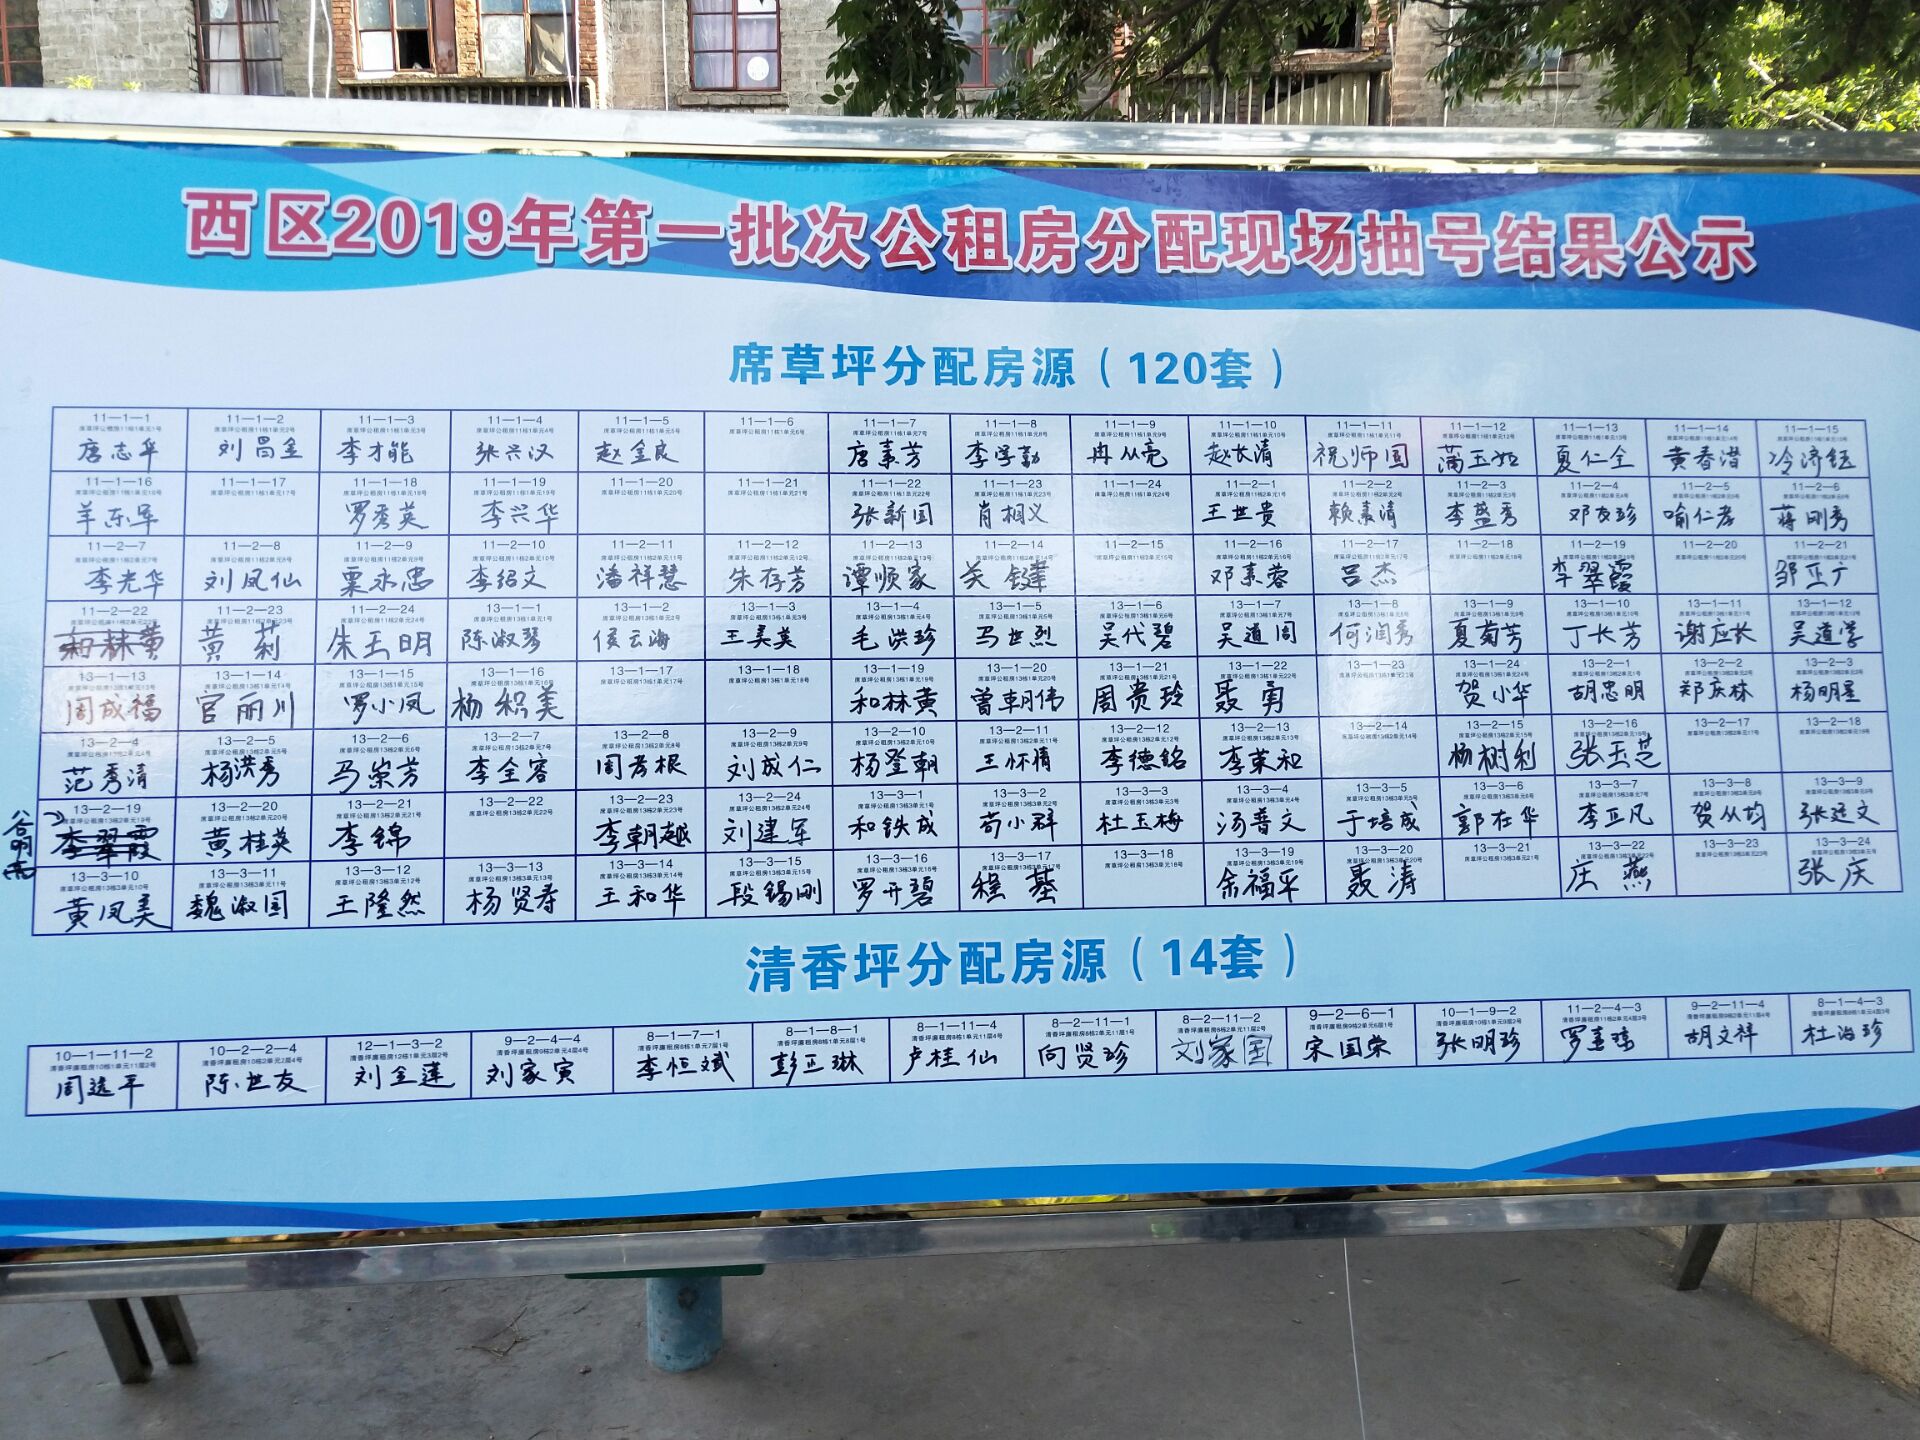 西区2019年第一批次公租房分配现场抽号结果公示
席草坪分配房源（120套）
11—1—1 11—1—2 11—1—3 11—1—4 11—1—5 11—1—6 11—1—7 11—1—8 11—1—9 11—1—10 11—1—11 11—1—12 11—1—13 11—1—14 11—1—15
唐志华 刘昌金 李才能 张兴汉 赵金良 唐素芳 李学勤 冉从亮 赵长清 祝师国 蒲玉如 夏仁全 黄春潜 冷济钰
11—1—16 11—1—17 11—1—18 11—1—19 11—1—20 11—1—21 11—1—22 11—1—23 11—1—24 11—2—1 11—2—2 11—2—3 11—2—4 11—2—5 11—2—6
羊东军 罗秀英 李兴华 张新国 肖相义 王世贵 赖素清 李盛秀 邓友珍 喻仁孝 蒋刚秀
11—2—7 11—2—8 11—2—9 11—2—10 11—2—11 11—2—12 11—2—13 11—2—14 11—2—15 11—2—16 11—2—17 11—2—18 11—2—19 11—2—20 11—2—21
李光华 刘凤仙 栗永忠 李绍文 潘祥慧 朱存芳 谭顺家 关键 邓素蓉 吕杰 李翠霞 邹正广
11—2—22 11—2—23 11—2—24 13—1—1 13—1—2 13—1—3 13—1—4 13—1—5 13—1—6 13—1—7 13—1—8 13—1—9 13—1—10 13—1—11 13—1—12
和林黄 黄莉 朱玉明 陈淑琴 侯云海 王美英 毛洪珍 马世烈 吴代碧 吴道周 何润秀 夏菊芳 丁长芳 谢应长 吴道学
13—1—13 13—1—14 13—1—15 13—1—16 13—1—17 13—1—18 13—1—19 13—1—20 13—1—21 13—1—22 13—1—23 13—1—24 13—2—1 13—2—2 13—2—3
周成福 官丽川 罗小凤 杨织美 和林黄 曾朝伟 周贵玲 聂勇 贺小华 胡忠明 郑庆林 杨明星
13—2—4 13—2—5 13—2—6 13—2—7 13—2—8 13—2—9 13—2—10 13—2—11 13—2—12 13—2—13 13—2—14 13—2—15 13—2—16 13—2—17 13—2—18
范秀清 杨洪秀 马崇芳 李全容 周孝根 刘成仁 杨登朝 王怀清 李德铭 李荣和 杨树利 张玉芝
13—2—19 13—2—20 13—2—21 13—2—22 13—2—23 13—2—24 13—3—1 13—3—2 13—3—3 13—3—4 13—3—5 13—3—6 13—3—7 13—3—8 13—3—9
李翠霞 黄桂英 李锦 李朝越 刘建军 和铁成 苟小群 杜玉梅 汤普文 于培成 郭在华 李正凡 贺从均 张廷文
13—3—10 13—3—11 13—3—12 13—3—13 13—3—14 13—3—15 13—3—16 13—3—17 13—3—18 13—3—19 13—3—20 13—3—21 13—3—22 13—3—23 13—3—24
黄凤美 魏淑国 王隆然 杨贤寿 王和华 段锡刚 罗开碧 程基 余福平 聂涛 庄燕 张庆
清香坪分配房源（14套）
10—1—11—2 10—2—2—4 12—1—3—2 9—2—4—4 8—1—7—1 8—1—8—1 8—1—11—4 8—2—11—1 8—2—11—2 9—2—6—1 10—1—9—2 11—2—4—3 9—2—11—4 8—1—4—3
周远平 陈世友 刘金莲 刘家寅 李恒斌 彭正琳 卢桂仙 向贤珍 刘家国 宋国荣 张明珍 罗素琼 胡文祥 杜治珍